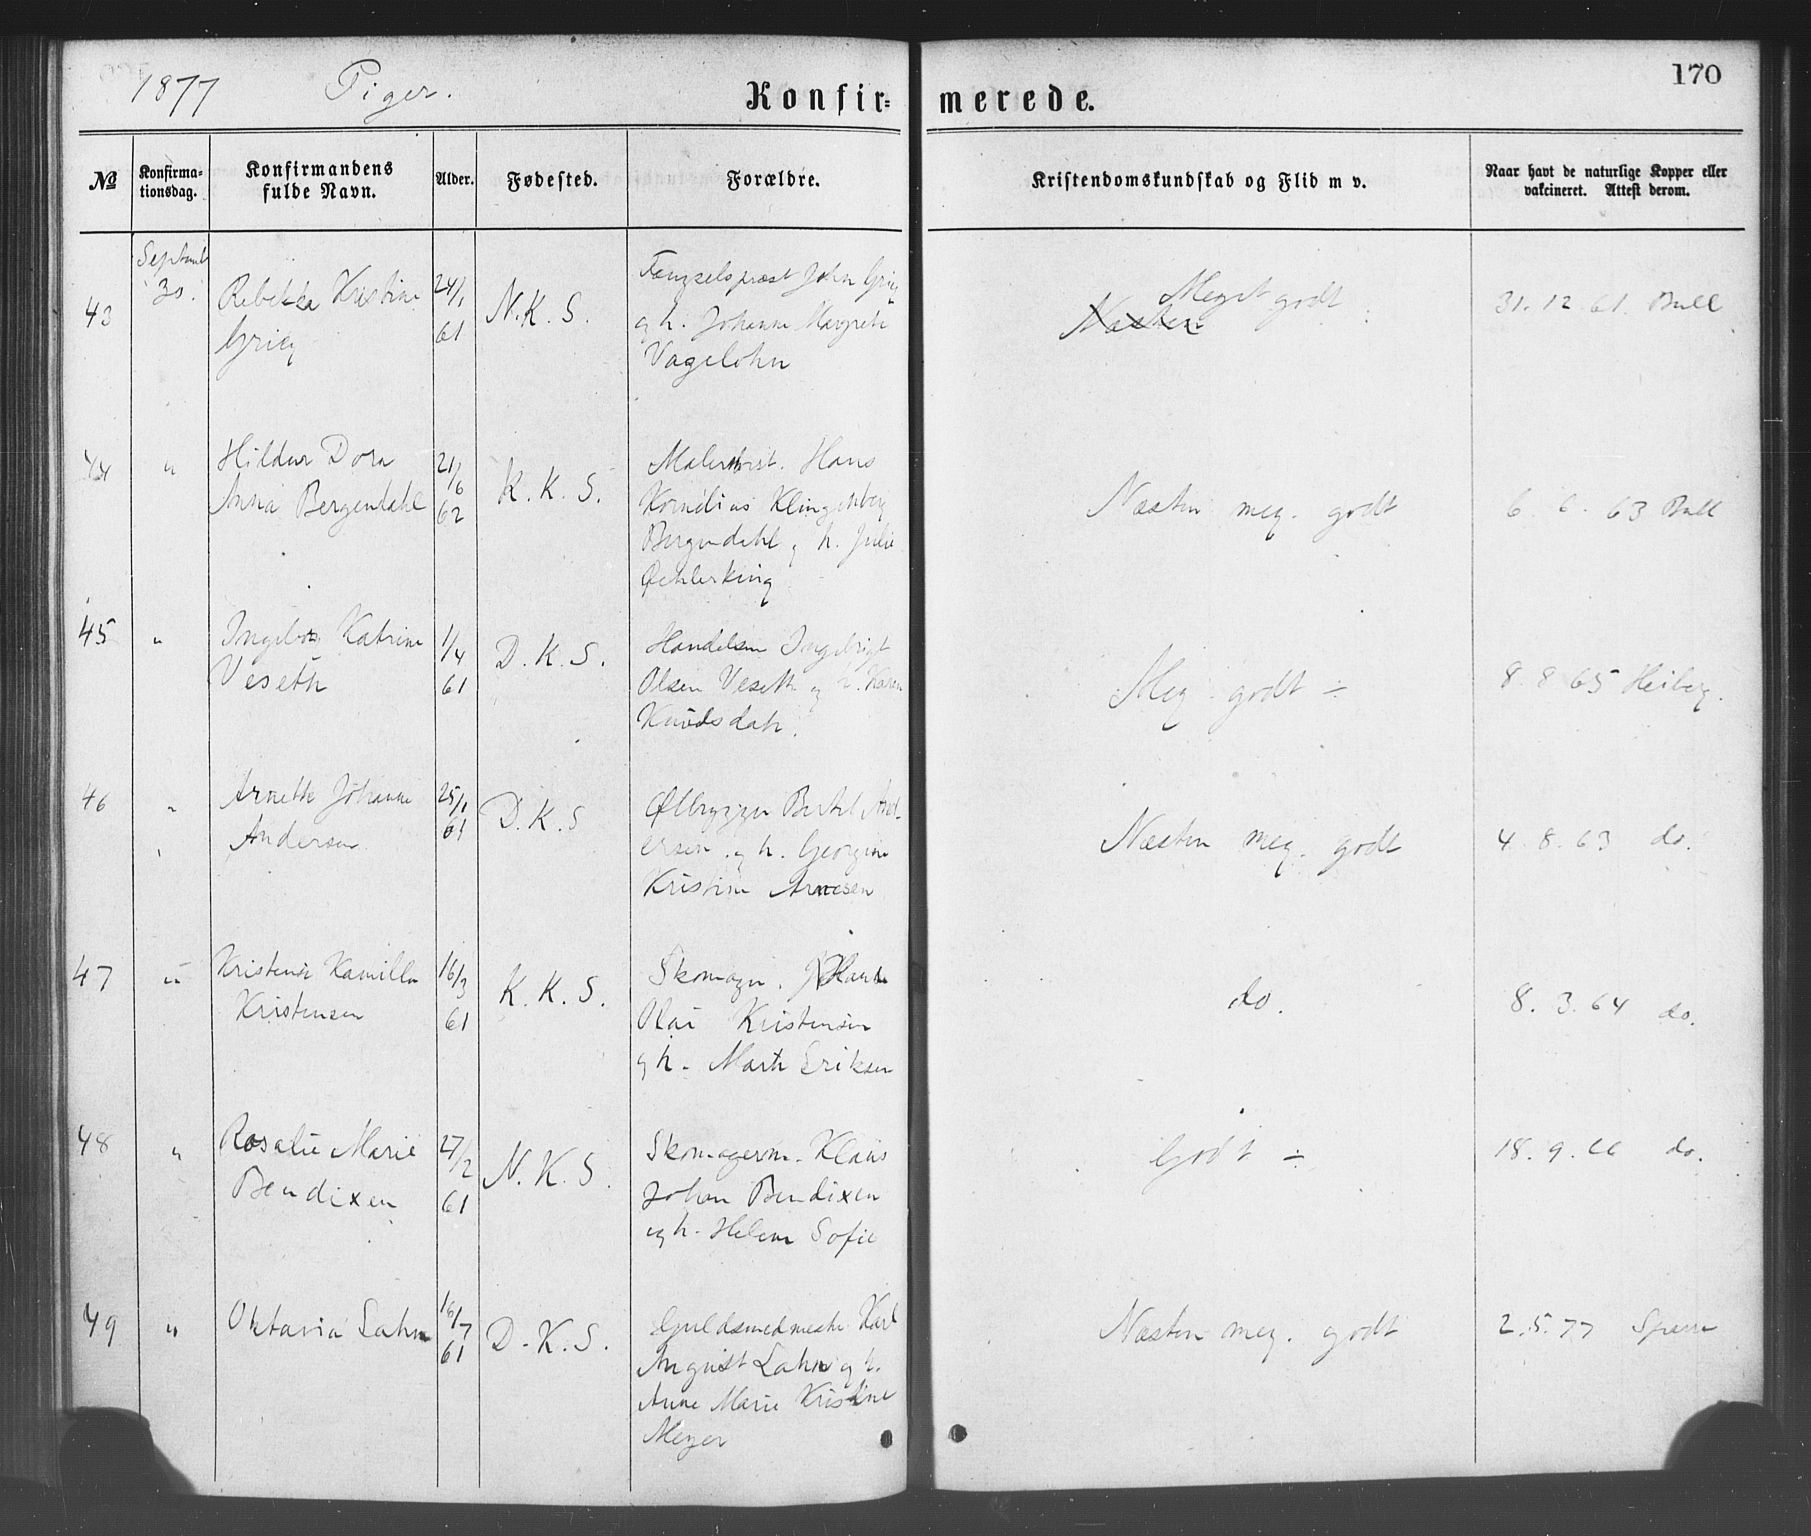 1877 Piger. Konfir= merede. 170
No
Konfirma-
tionsdag.
Konfirmandens
fulde Navn.
Alder.
Fødested.
Forældre.
Kristendomskundskab og Flid m v.
Naar havt de naturlige Kopper eller
vakcineret. Attest derom.
43
Septemb
30.
Rebekka Kristine
Grieg
24/1
61
N. K. S.
Fængselspræst John Grieg
og h. Johanne Margrete
Vagelohn
Meget godt
Næsten
31. 12 61. Bull
44
"
Hildur Dora
Anna Bergendahl
21/6
62
K. K. S.
Hans
Kornelius Klingenberg
Bergendahl og h. Julie
Oehlerking
Næsten meg. godt
6. 6. 63 Bull
45
"
Ingeborg Katrine
Veseth
1/4
61
D. K. S.
Handelsm Ingebrigt
Olsen Veseth og h. Karen
Knudsdatr.
Meg. godt ÷
8. 8 65 Heiberg.
46
"
Arnette Johanne
Andersen
25/1
61
D. K. S
Ølbrygger Bertel And-
ersen og h. Georgine
Kristine Arnesen
Næsten meg. godt
4. 8. 63 do.
47
"
Kristense Kamilla
Kristensen
16/3
61
K. K. S.
Skomager.
Olai Kristensen
og h. Marte Eriksen
do.
8. 3. 64 do.
48
"
Rosalie Marie
Bendixen
27/2
61
N. K. S.
Skomagerm. Klaus
Johan Bendixen
og h. Helene Sofie
Godt ÷
18. 9. 66 do.
49
"
Oktavia Lahn
16/7
61
D. K. S.
Guldsmedmester Karl
August Lahn og h.
Anne Marie Kristine
Meyer
Næsten meg. godt
2. 5. 77